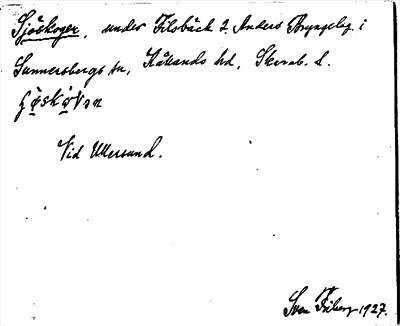 Sjöskogen, under Filsbäck 2 Anders Bryngelsg. i
Sunnersbergs sn, Kållands hd, Skarab. l.
Vid Ullersund.
Sven Friberg 1927.